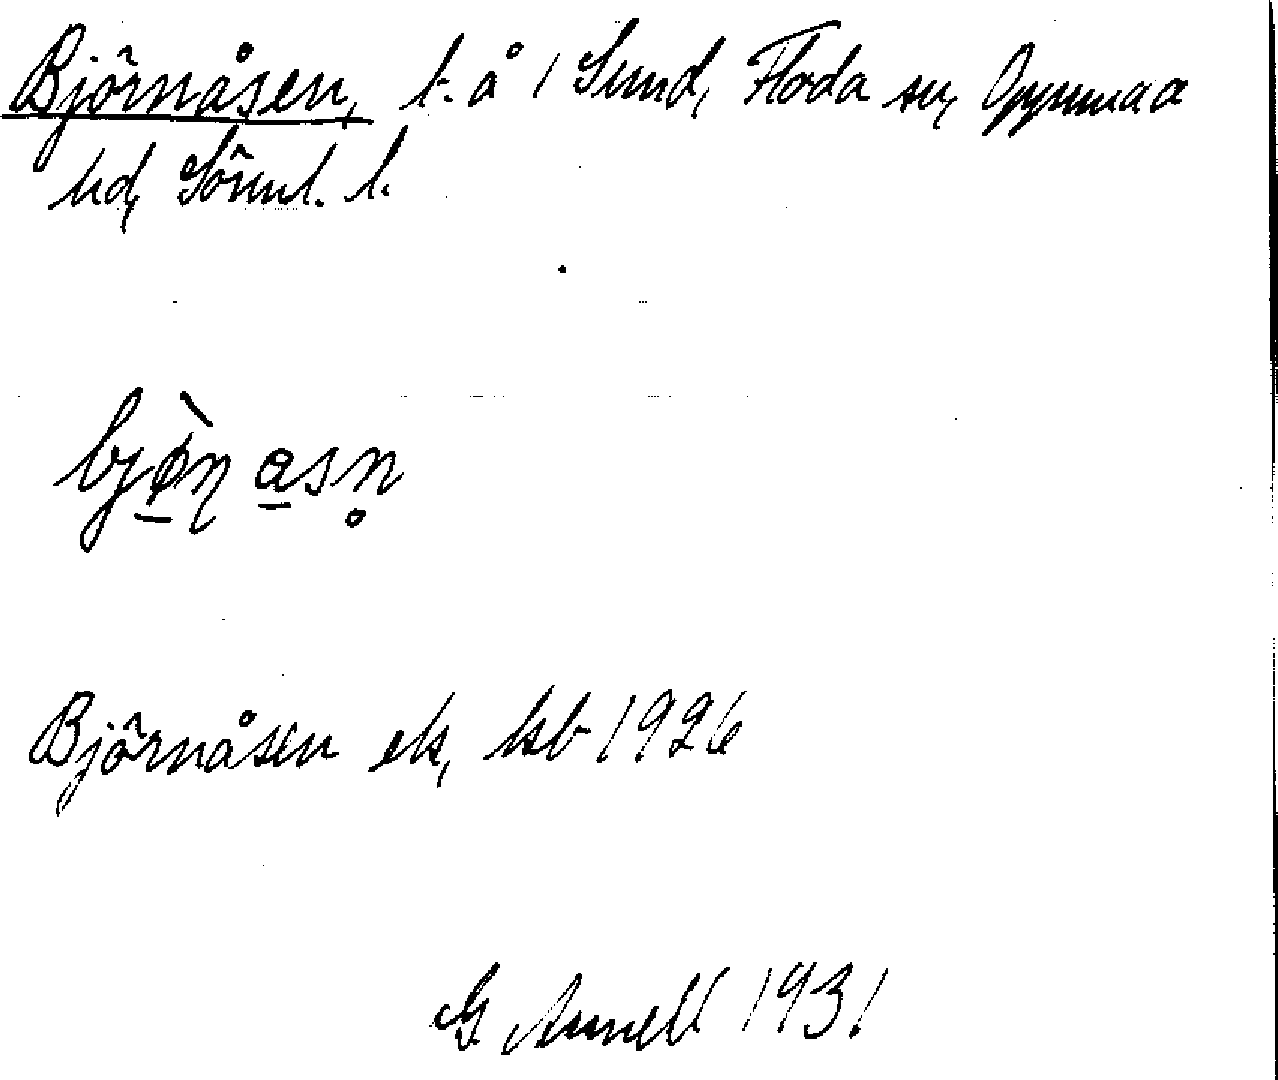 Björnåsen, t. å 1 Sund, Floda sn, Oppunda
hd, Södml. l.
bjø̠̀ɳ a̠sn̥
Björnåsen ek, kb 1926
G Annell 1931